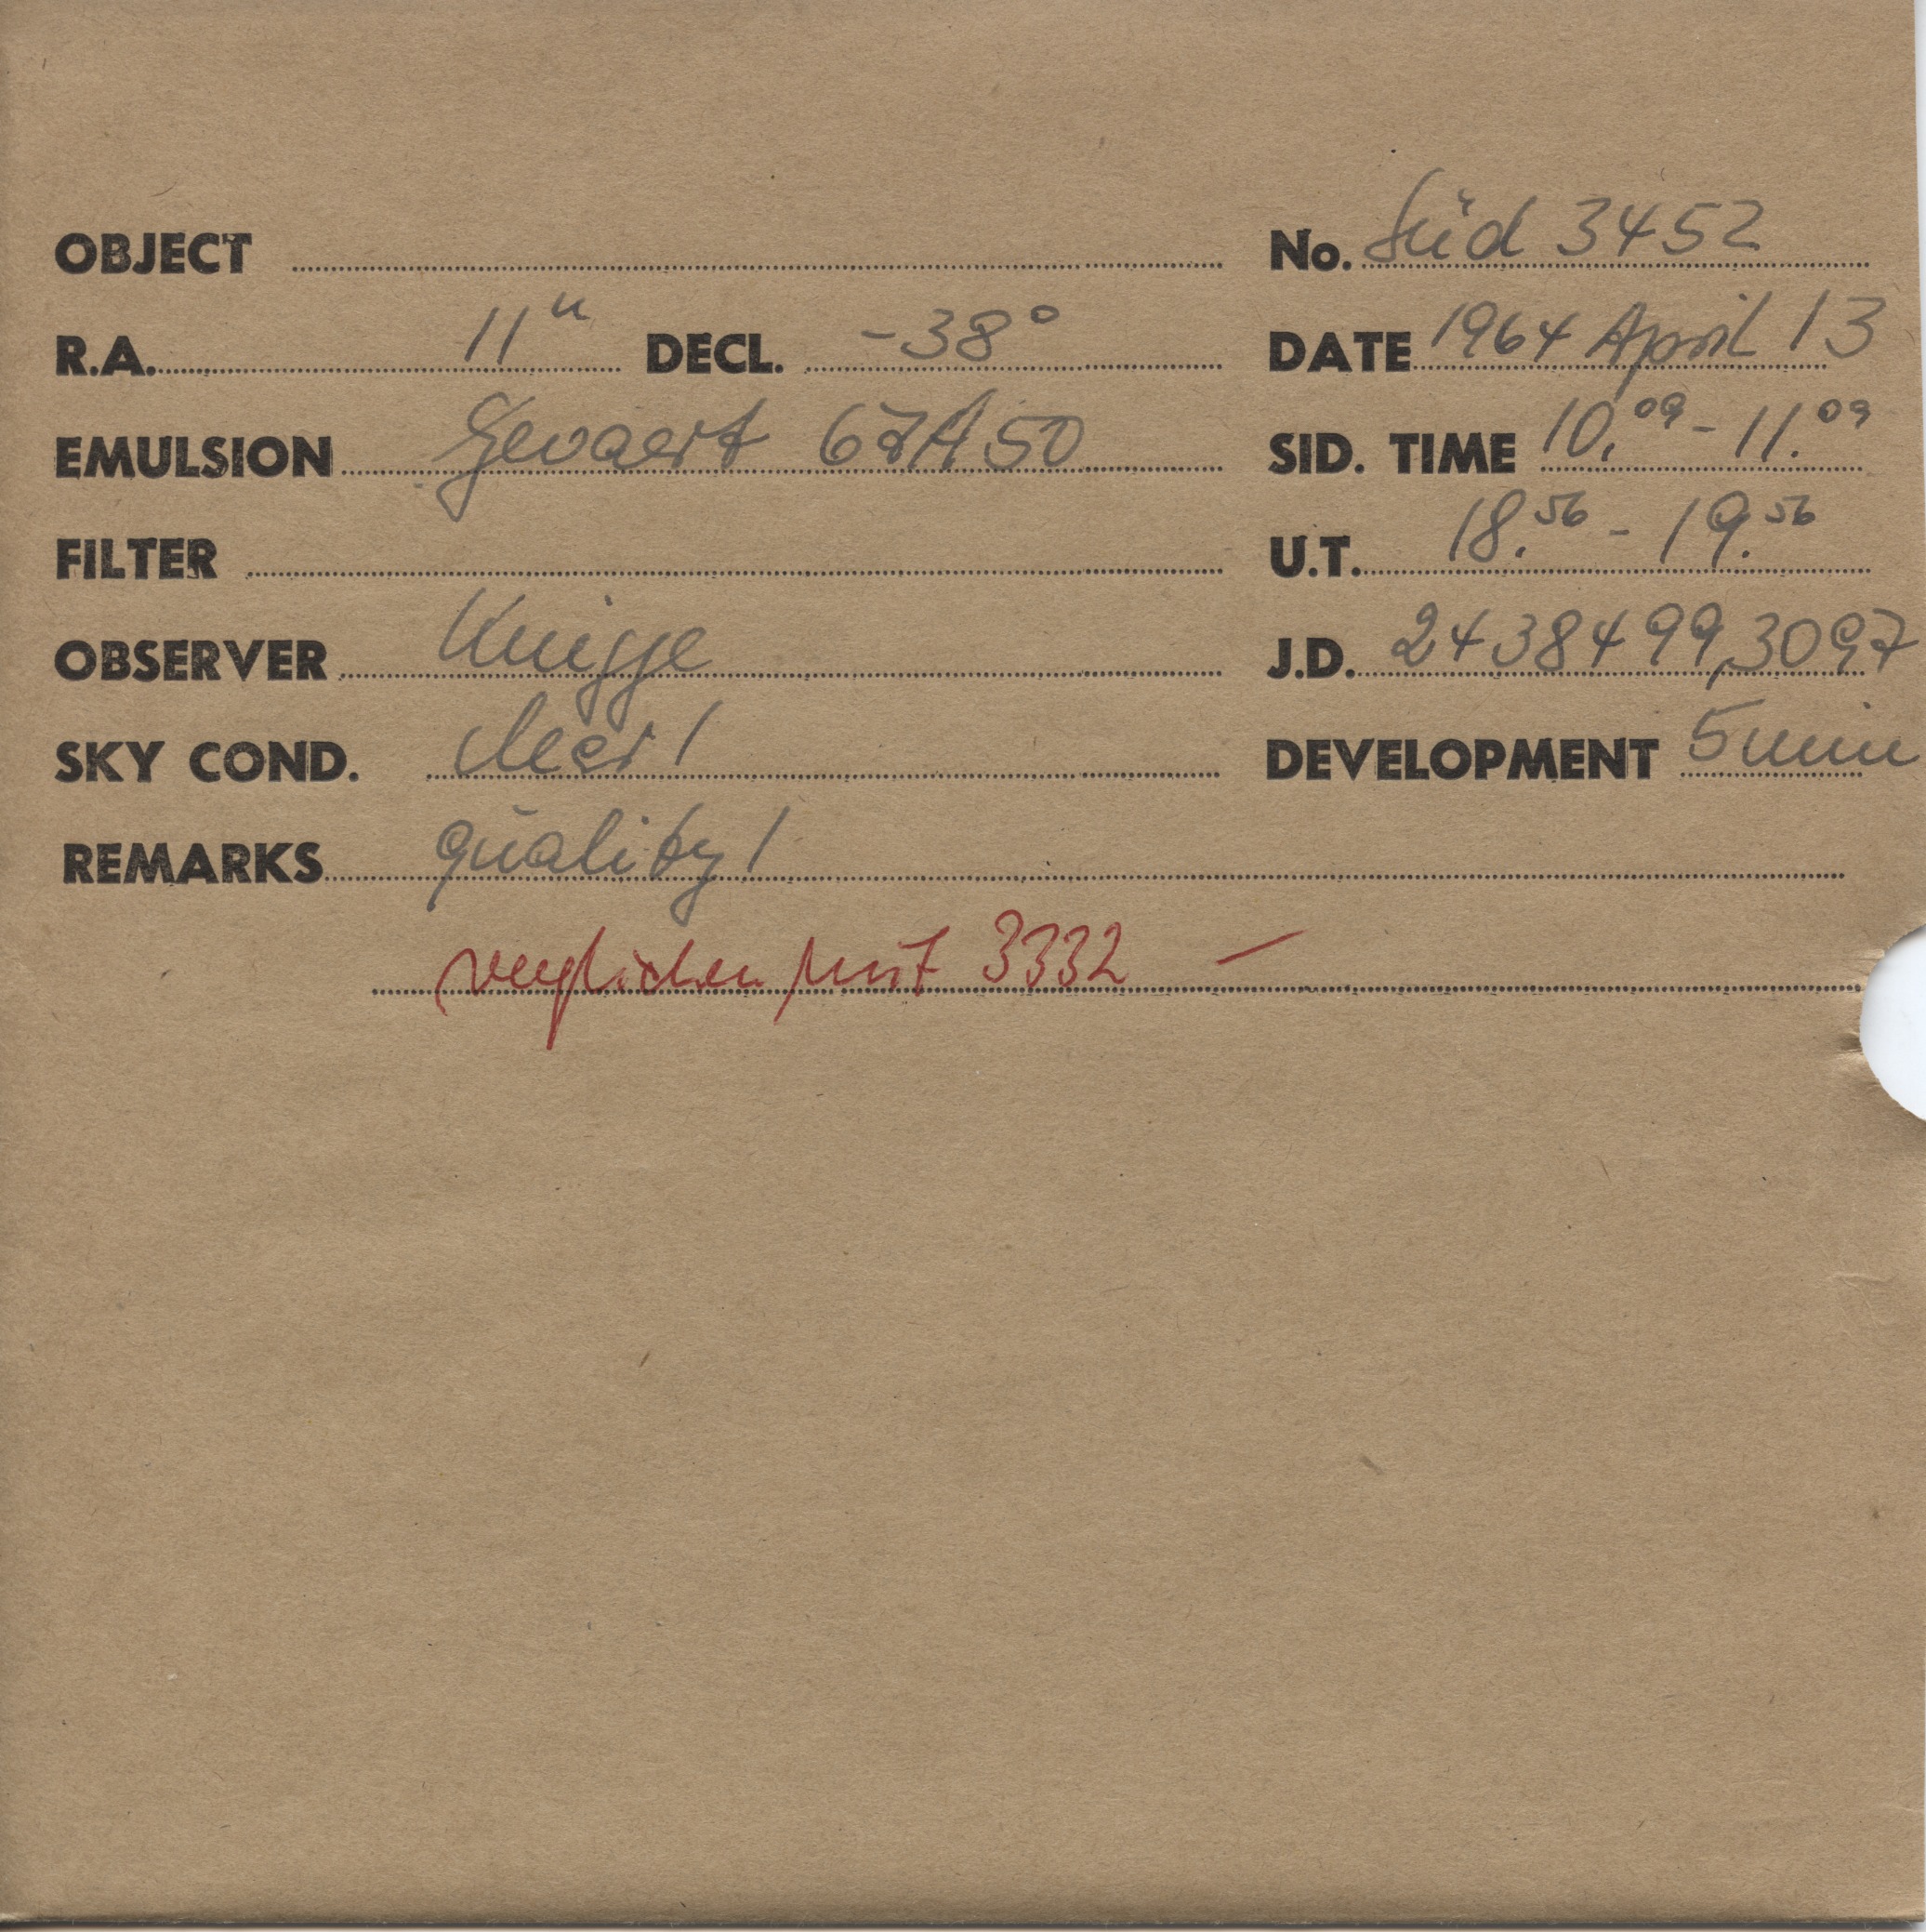 OBJECT No. Süd 3452
R.A. 11ʰ DECL. -38° DATE 1964 April 13
EMULSION Gevaert 67A50 SID. TIME 10.⁰⁹ - 11.⁰⁹
FILTER U.T. 18.⁵⁶ - 19.⁵⁶
OBSERVER Knigge J.D. 2438499,3097
SKY COND. clear 1 DEVELOPMENT 5 min
REMARKS quality 1
verglichen mit 3332 —